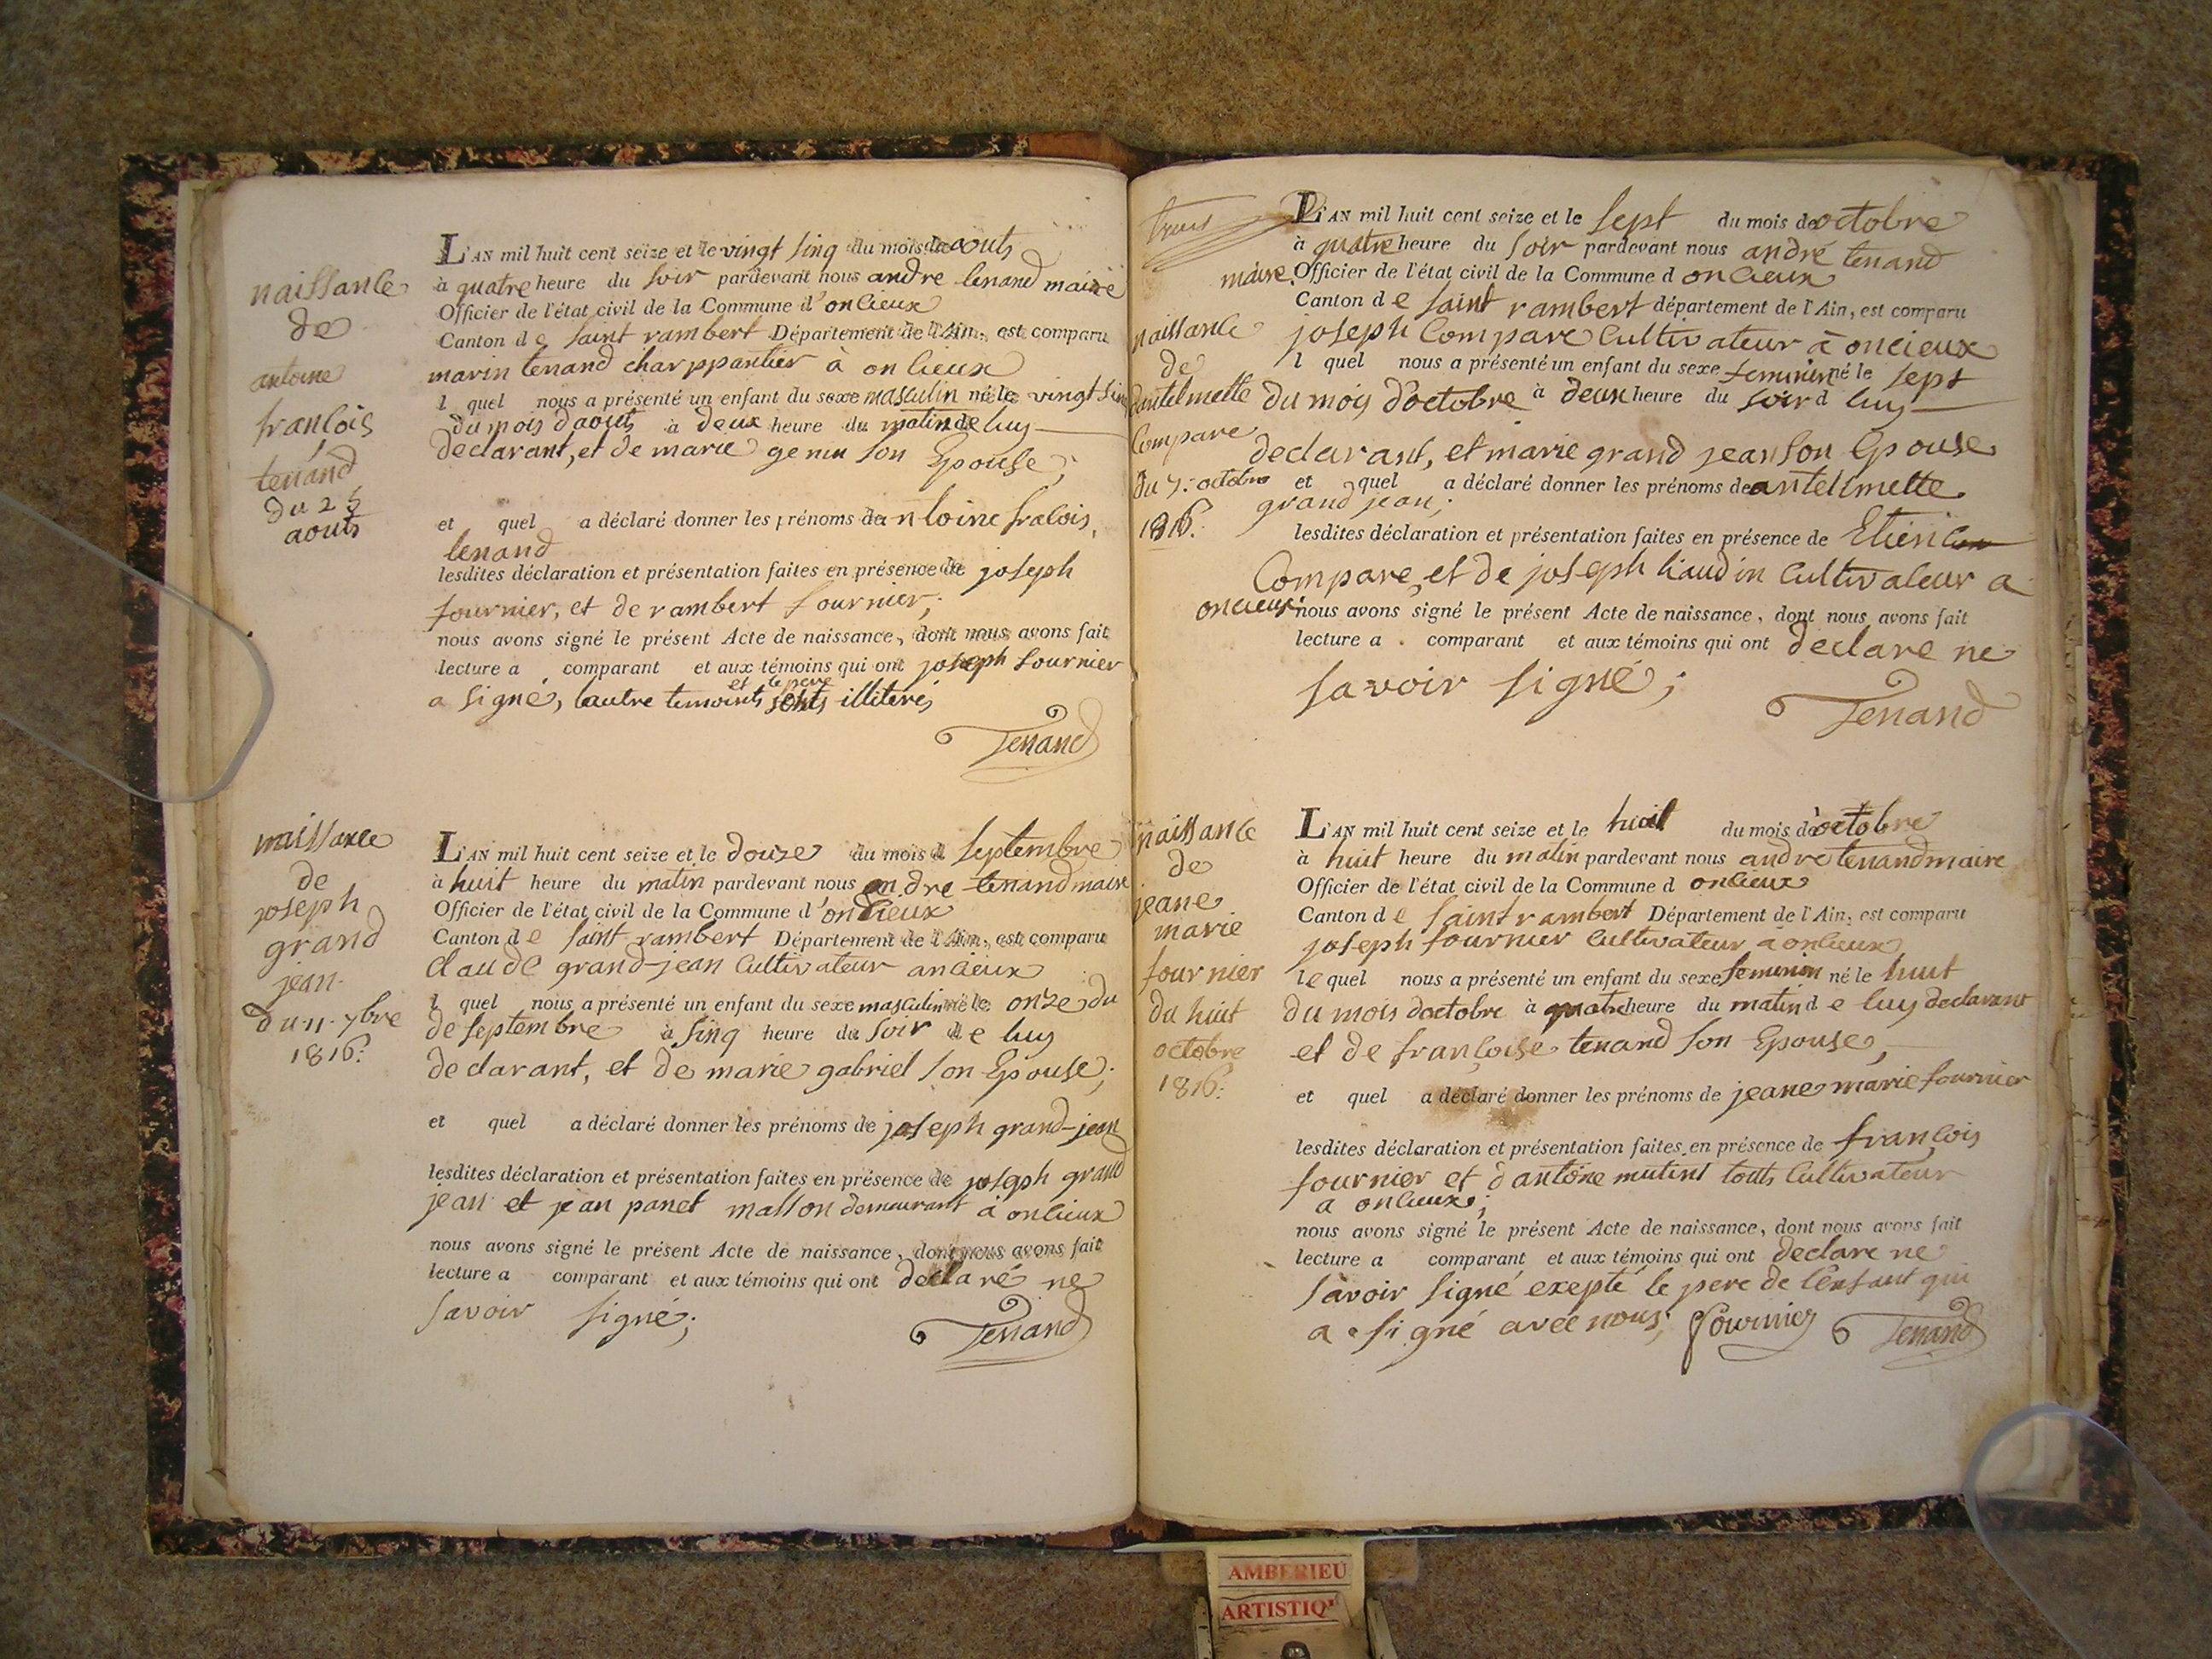 naissance
de
antoine
francois
tenand
du 25
aouts
L'AN mil huit cent seize et le vingt sinq du mois de aouts
à quatre heure du soir pardevant nous andre tenand maire
Officier de l'état civil de la Commune d'oncieux
Canton de saint rambert Département de l'Ain, est comparu
marin tenand charppantier à oncieux
l quel nous a présenté un enfant du sexe masculin né le vingt sin
du mois daouts à deux heure du matin de luy
declarant, et de marie genin son Epouse;
et quel a déclaré donner les prénoms de antoine fracois,
tenand
lesdites déclaration et présentation faites en présence de joseph
fournier, et de rambert fournier;
nous avons signé le présent Acte de naissance, dont nous avons fait
lecture a comparant et aux témoins qui ont joseph fournier
et le pere
a signé, lautre temoints sonts illiteris
Tenand
naissance
de
joseph
grand
jean
du 11 7bre
1816.
L'AN mil huit cent seize et le douze du mois d septembre
à huit heure du matin pardevant nous andre tenand maire
Officier de l'état civil de la Commune d'oncieux
Canton de saint rambert Département de l'Ain, est comparu
claude grand-jean cultivateur ancieux
l quel nous a présenté un enfant du sexe masculin né le onze du
de septembre à sinq heure du soir de luy
declarant, et de marie gabriel son Epouse;
et quel a déclaré donner les prénoms de joseph grand-jean
lesdites déclaration et présentation faites en présence de joseph grand
jean et jean panet masson demeurant à oncieux
nous avons signé le présent Acte de naissance, dont nous avons fait
lecture a comparant et aux témoins qui ont declaré ne
savoir signé;
Tenand
L'AN mil huit cent seize et le sept du mois de octobre
à quatre heure du soir pardevant nous andré tenand
maire. Officier de l'état civil de la Commune d oncieux
Canton de saint rambert département de l'Ain, est comparu
joseph Compare Cultivateur à oncieux
l quel nous a présenté un enfant du sexe feminin né le sept
du mois d'octobre à deux heure du soir d luy
declarant, et marie grand jean son Epouse
et quel a déclaré donner les prénoms de antelmette
grand jean;
lesdites déclaration et présentation faites en présence de Etien
Compare, et de joseph liaudin Cultivateur a
oncieux nous avons signé le présent Acte de naissance, dont nous avons fait
lecture a comparant et aux témoins qui ont declare ne
savoir signé;
Tenand
naissance
de
dantelmette
Compare
du 7. octobre
1816.
naissance
de
jeane
marie
fournier
du huit
octobre
1816.
L'AN mil huit cent seize et le huit du mois d'octobre
à huit heure du matin pardevant nous andre tenand maire
Officier de l'état civil de la Commune d oncieux
Canton de saint rambert Département de l'Ain, est comparu
joseph fournier cultivateur à oncieux
le quel nous a présenté un enfant du sexe feminin né le huit
du mois doctobre à quatre heure du matin de luy declarant
et de françoise tenand son Epouse,
et quel a déclaré donner les prénoms de jeane marie fournier
lesdites déclaration et présentation faites en présence de françois
fournier et d'antoine mutint touts Cultivateur
a oncieux;
nous avons signé le présent Acte de naissance, dont nous avons fait
lecture a comparant et aux témoins qui ont declare ne
savoir signé exepté le pere de l'enfant qui
a signé avec nous; fournier Tenand
AMBERIEU
ARTISTIQ